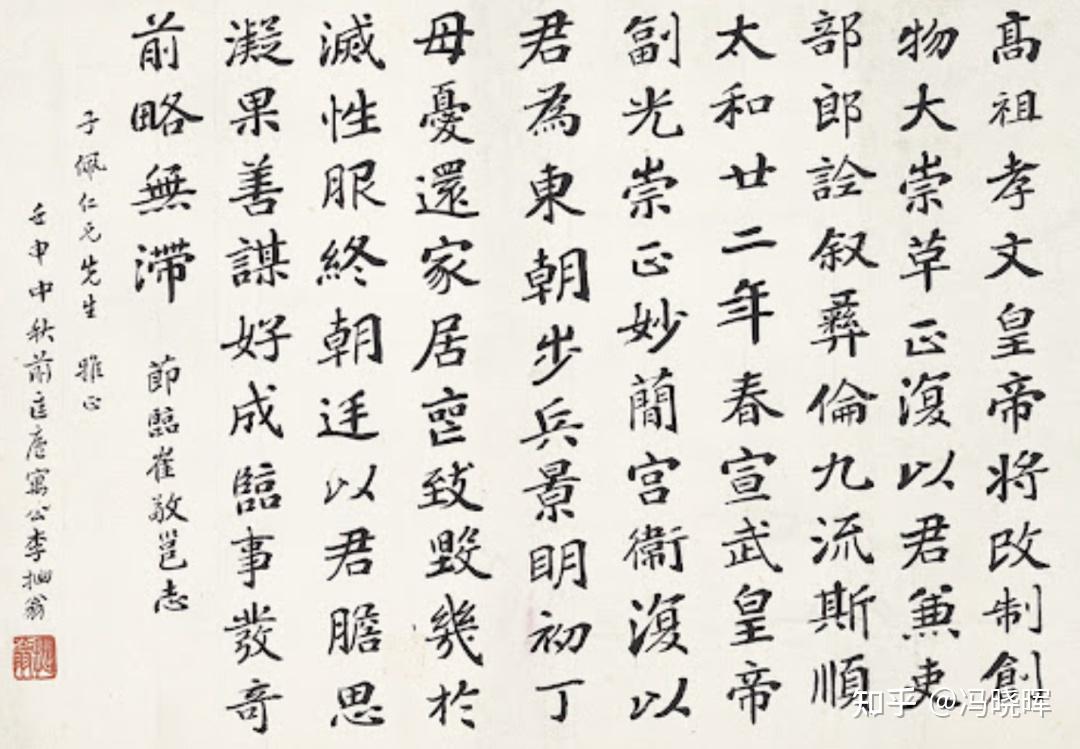 髙祖孝文皇帝将改制創
物大崇草正復以君兼吏
部郎詮叙彝倫九流斯順
太和廿二年春宣武皇帝
副光崇正妙簡宫衛復以
君為東朝步兵景明初丁
母憂還家居喪致毀幾於
滅性服終朝廷以君膽思
凝果善謀好成臨事發奇
前略無滯 節臨崔敬邕志
子佩仁兄先生 雅正
壬申中秋前匡廬寓公李拙翁
知乎 @冯晓晖